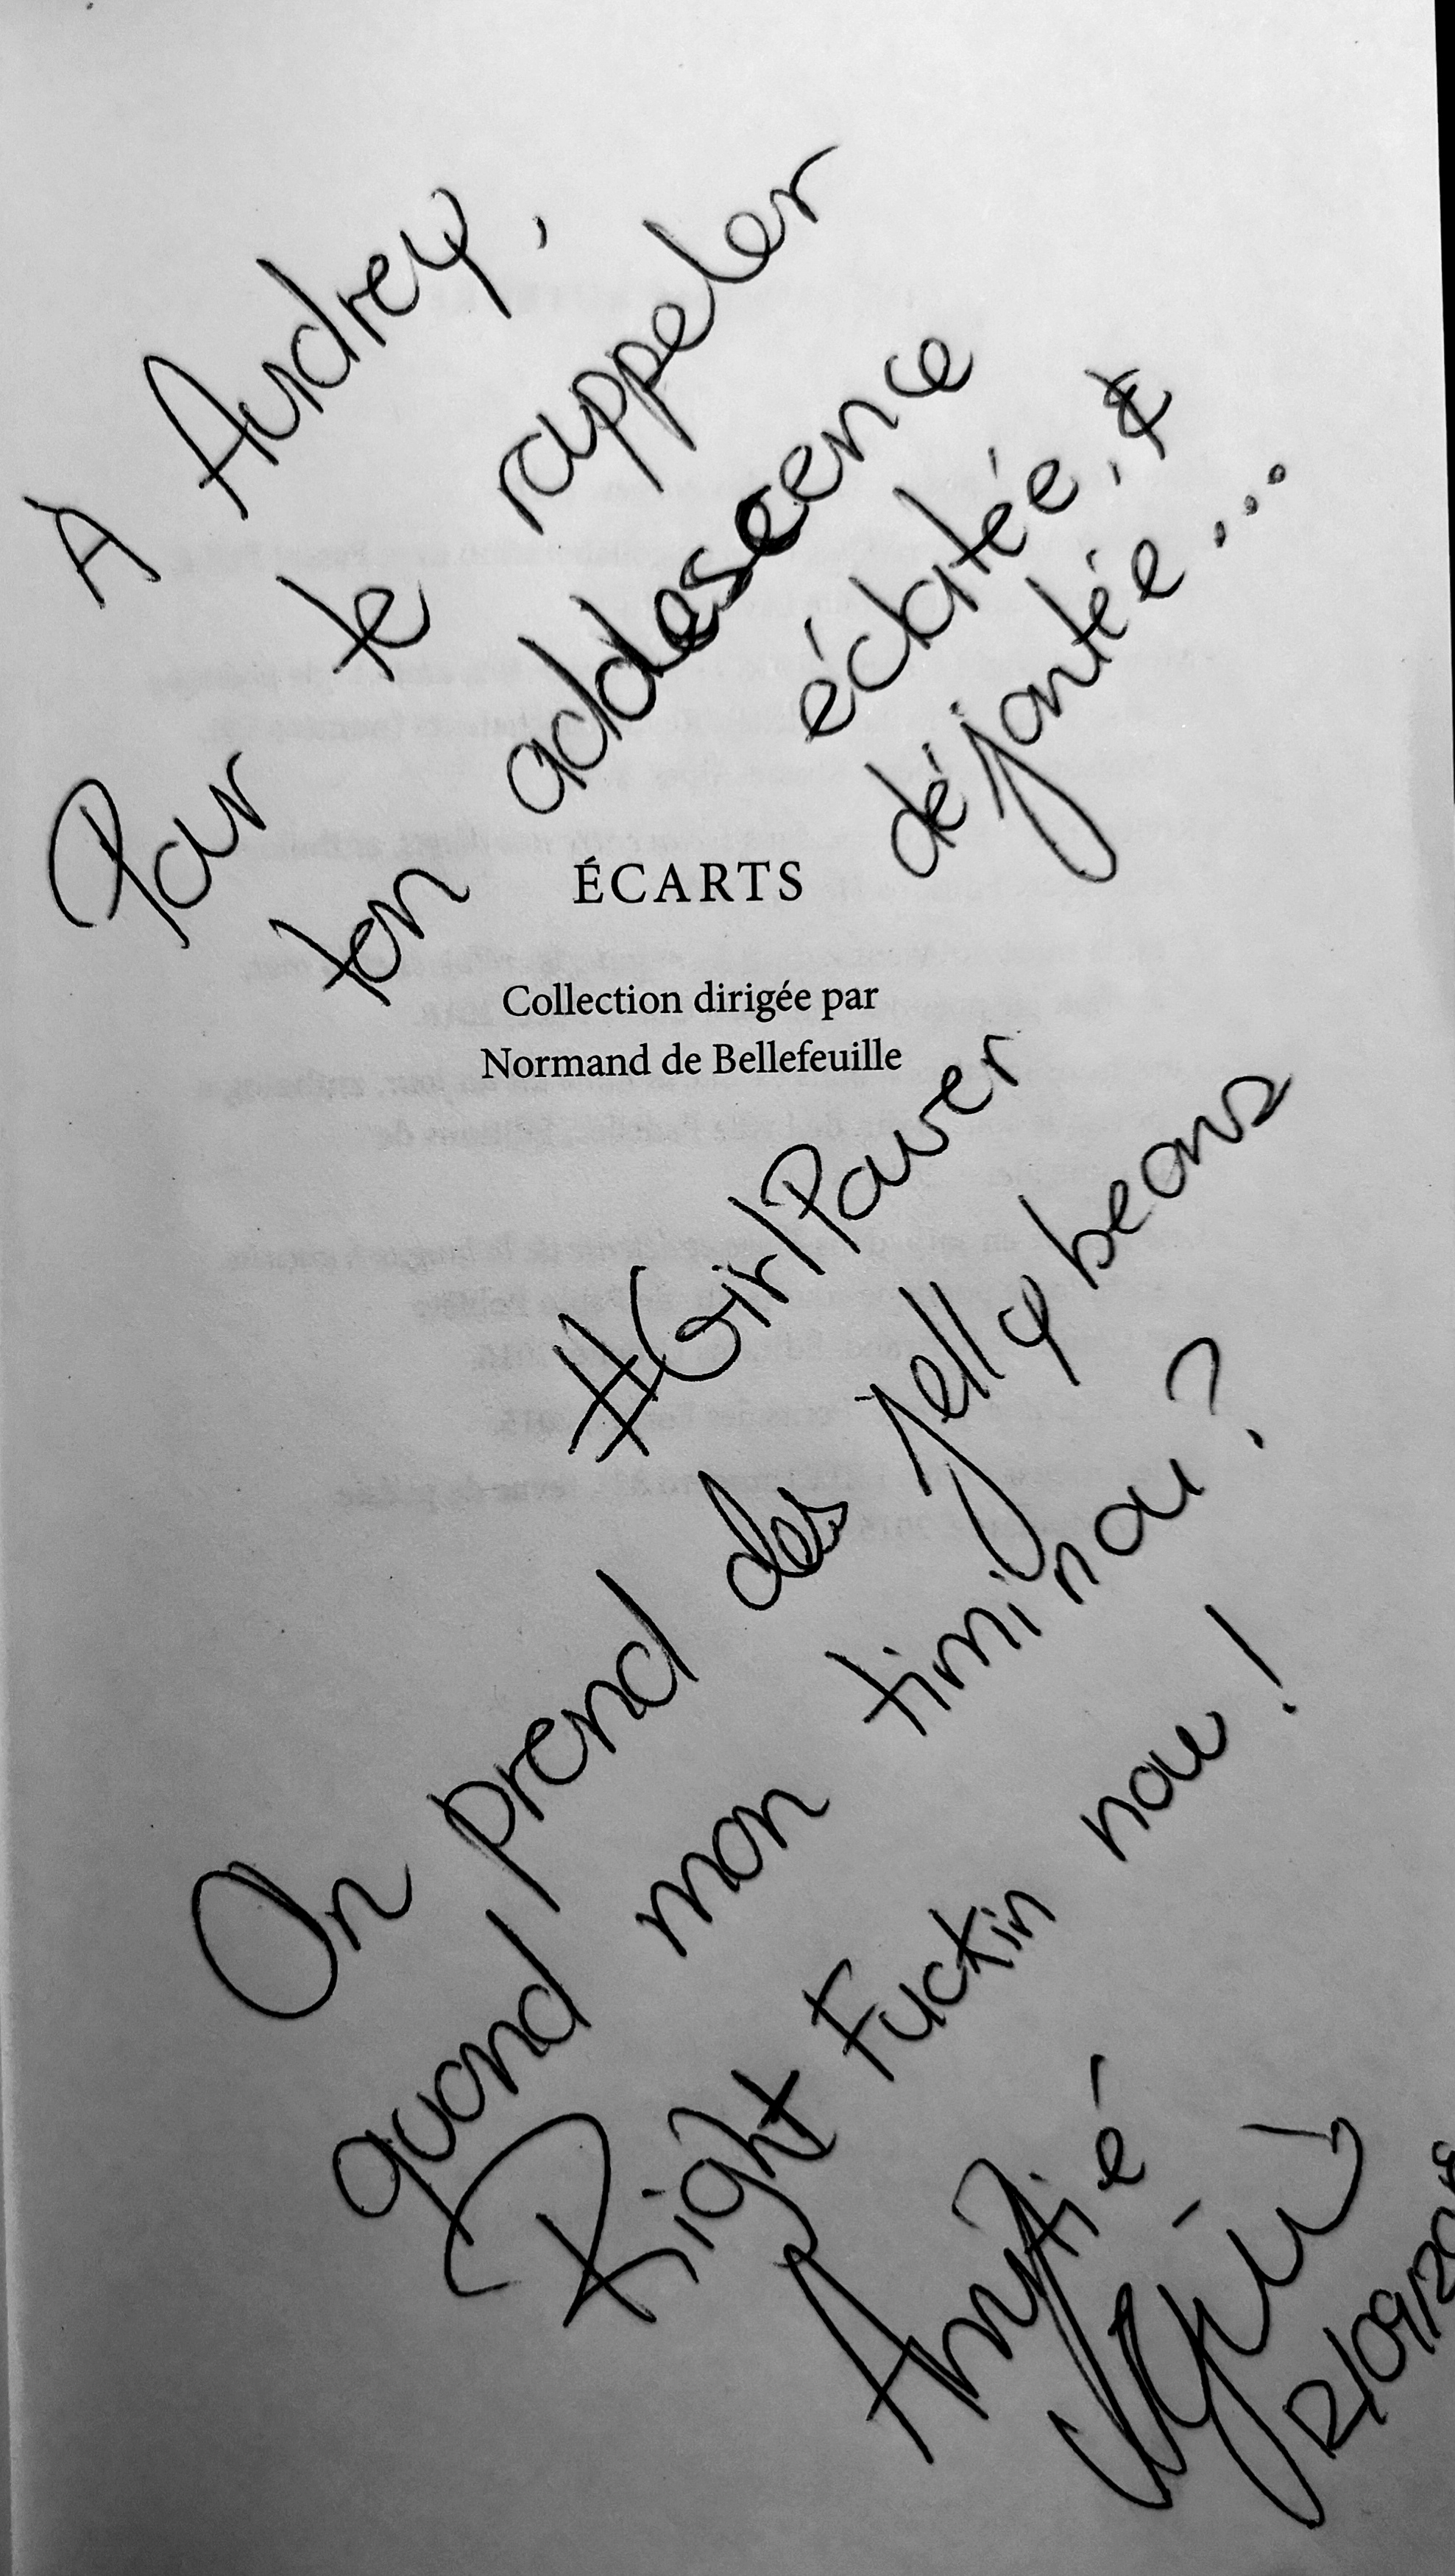 À Audrey,
Pour te rappeler
ton adolescence
éclatée, &
déjantée...
ÉCARTS
Collection dirigée par
Normand de Bellefeuille
#GirlPower
On prend des jelly beans
quand mon timinou?
Right Fuckin now!
Amitié